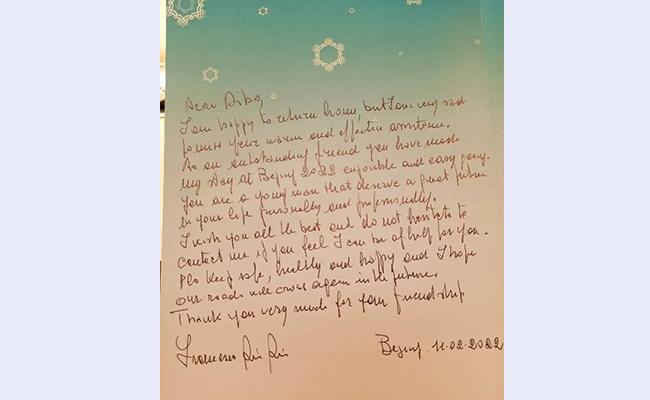 Dear Dibo,
I am happy to return home, but I am very sad
to miss your warm and effective assistance.
As an outstanding friend you have made
my stay at Bejing 2022 enjoiable and easy going.
You are a young man that deserve a great future
in your life personally and professionally.
I wish you all the best and do not hesitate to
contact me if you feel I can be of help for you.
Pls keep safe, healthly and happy and I hope
our roads will cross again in the future.
Thank you very much for your friendship
Francesco
Bejing. 11.02.2022